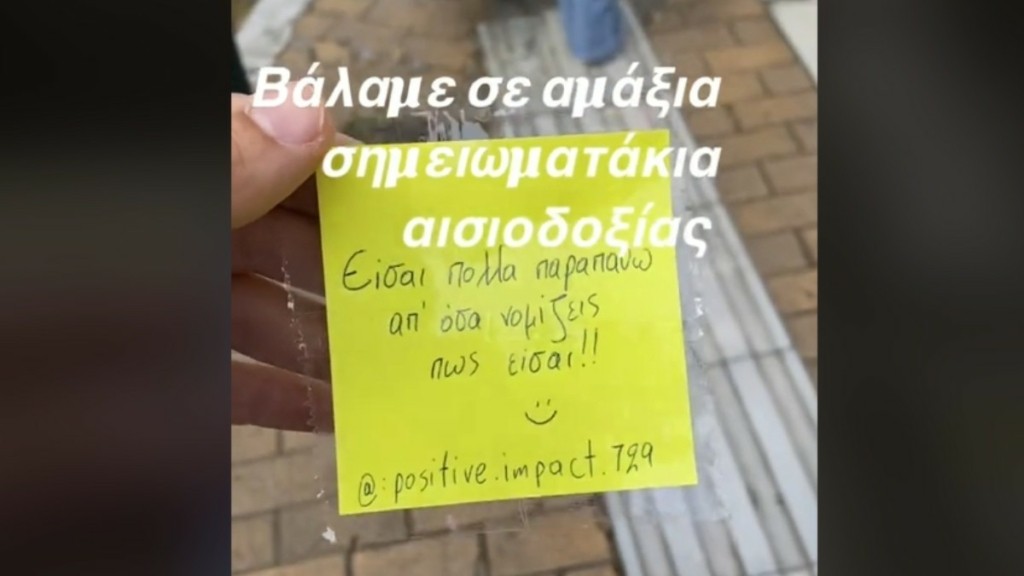 Βάλαμε σε αμάξια
σημειωματάκια
αισιοδοξίας
Είσαι πολλα παραπανω
απ' όσα νομίζεις
πως είσαι!!
@:positive.impact.729